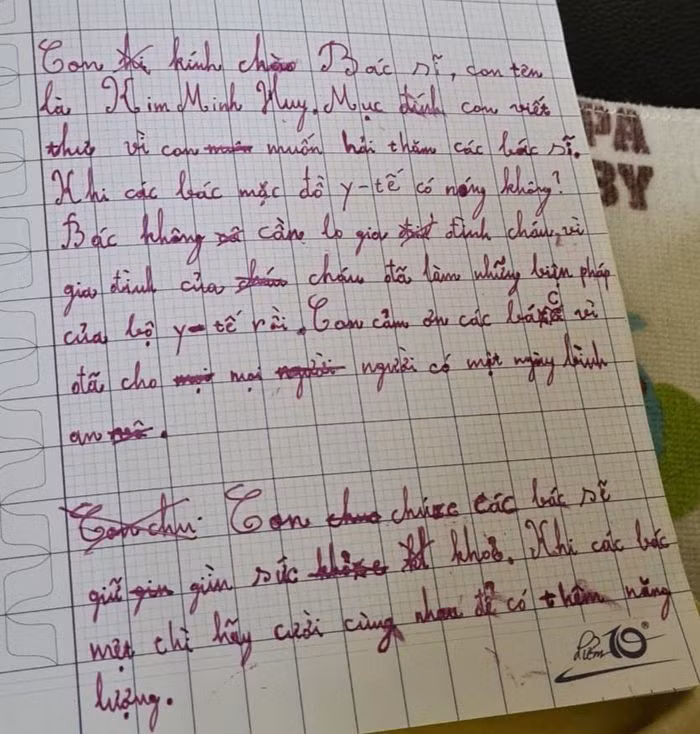 Con kính chào Bác sĩ, con tên
là Kim Minh Huy. Mục đính con viết
thư vì con muốn hỏi thăm các bác sĩ.
Khi các bác mặc đồ y-tế có nóng không?
Bác không cần lo gia đình cháu, vì
gia đình của cháu đã làm những biện pháp
của bộ y-tế rồi. Con cảm ơn các bác vì
đã cho mọi người có một ngày bình
an.
Con chúc các bác sĩ
giữ gìn sức khoẻ. Khi các bác
mệt thì hãy cười cùng nhau để có thêm năng
lượng.
Điểm 10
PA
BY